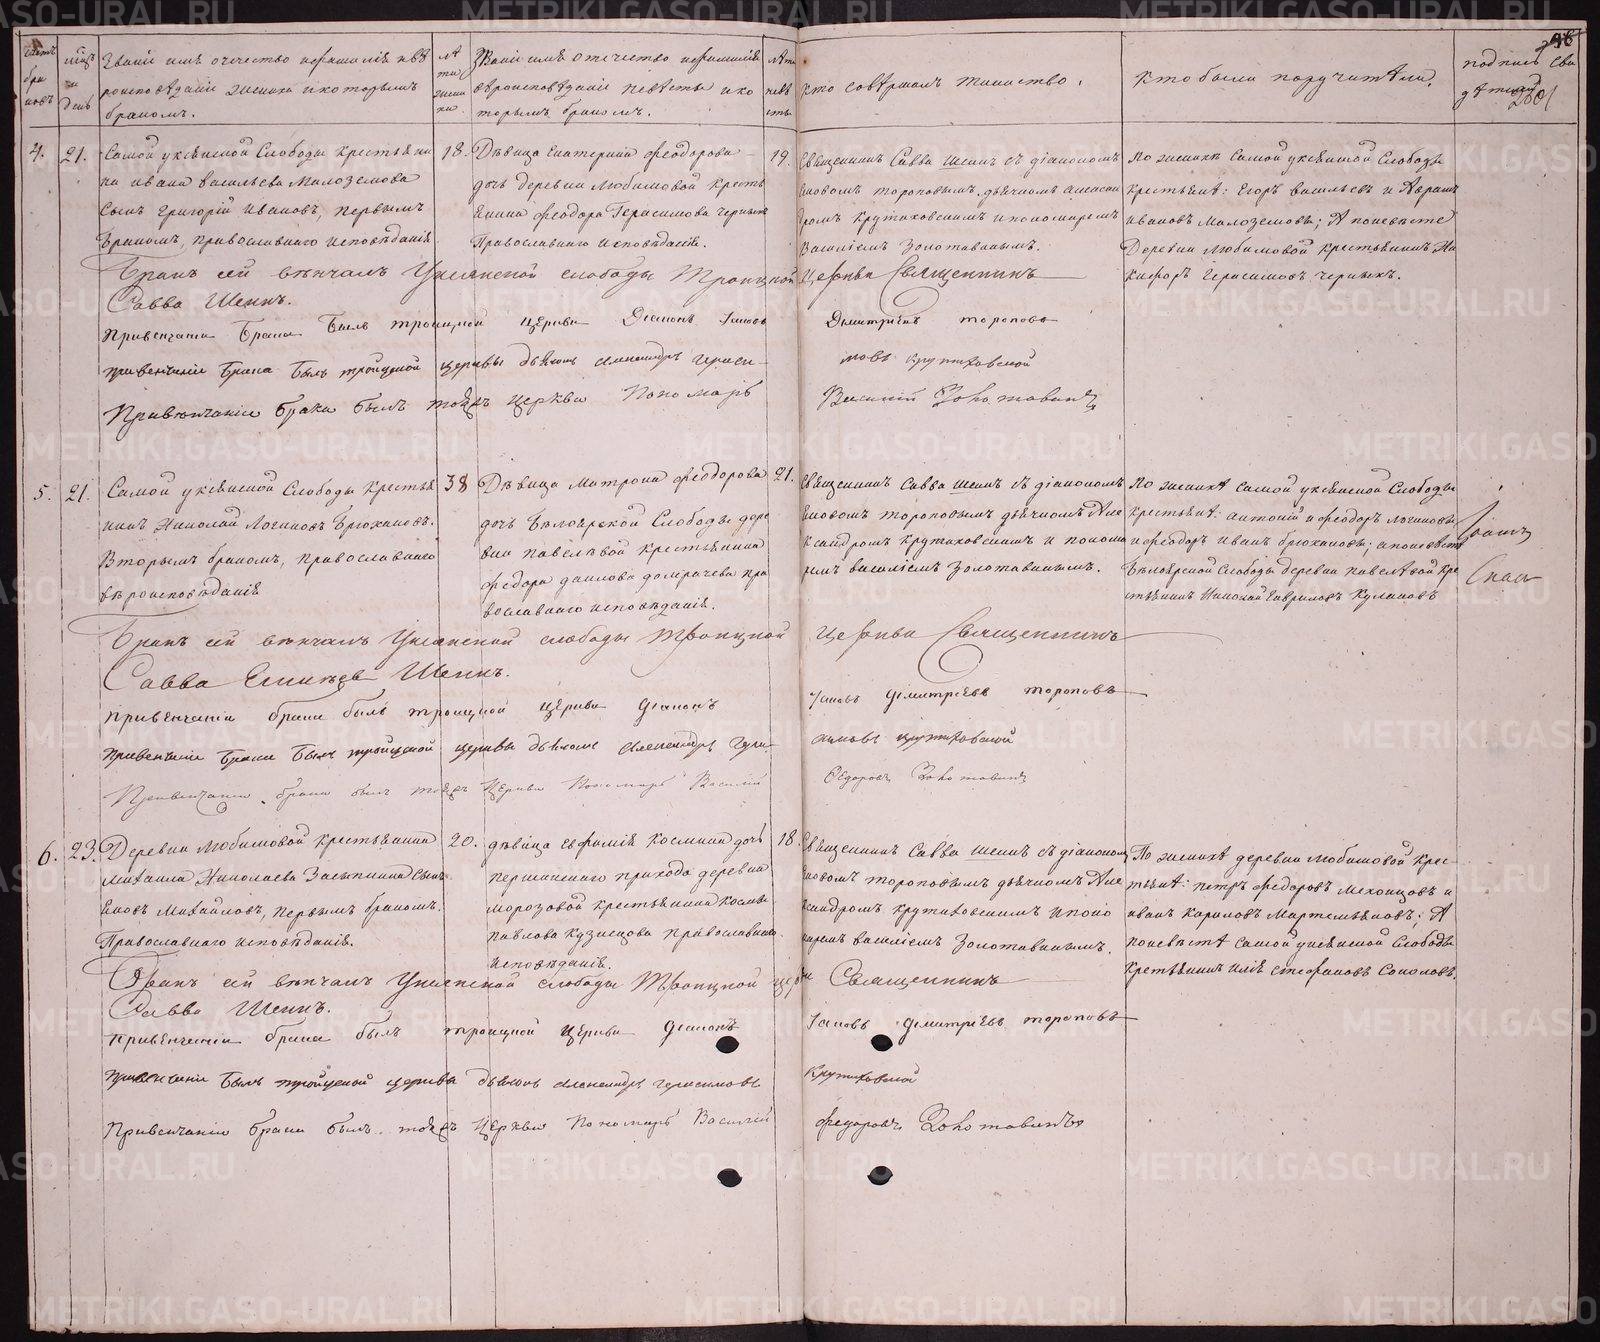 METRIKI.GASO-URAL.RU
Званіе имя отечество и фамилія и вѣ
роисповѣданіе жениха и которымъ
бракомъ.
Званіе имя отечество и фамилія
вѣроисповѣданіе невѣсты и ко
торымъ бракомъ.
кто совѣршалъ таинство.
кто были поручители.
4.
21.
Самой уксянской Слободы крестьяни
на ивана васильева Малоземова
сынъ григорій ивановъ, первымъ
бракомъ, православнаго исповѣданія
18.
Дѣвица Екатерина феодорова
дочь деревни Любимовой кресть
янина феодора Герасимова
Православнаго исповѣданія.
19.
Священникъ Савва Шеинъ съ діакономъ
Іаковомъ тороповымъ, дьячкомъ Алексан
дромъ крутиховскимъ и пономаремъ
Василіемъ Золотавинымъ.
По женихѣ Самой уксянской Слободы
крестьянѣ: Егоръ васильевъ и Авраамъ
ивановъ малоземовы; А по невѣсте
Деревни Любимовой крестьянинъ Ни
кифоръ герасимовъ
Бракъ сей вѣнчалъ Уксянской слободы Троицкой Церкви Священникъ
Савва Шеинъ.
При венчаніи брака былъ троицкой церкви Діаконъ Іаковъ Димитріевъ тороповъ
при венчаніи брака былъ тройцкой церквы дьячокъ Александръ гераси-мовъ крутиховской
При венчаніи брака былъ тоя церкви Пономарь Василій Золотавинъ
5.
21.
Самой уксянской Слободы крестья
нинъ Николай Логиновъ Брюхановъ.
Вторымъ бракомъ, православнаго
вѣроисповѣданія
38
Дѣвица Матрона феодорова
дочь Бѣлоярской Слободы дере
вни павелѣвой крестьянина
федора данилова домрачева пра
вославнаго исповѣданія.
21.
Священникъ Савва Шеинъ съ діакономъ
Іаковомъ тороповымъ дьячкомъ Але
ксандромъ крутиховскимъ и понома
ремъ василіемъ золотавинымъ.
По женихѣ самой уксянской Слободы
крестьянѣ: антоній и феодоръ логиновы
и феодоръ иванъ брюхановы; а по невѣстѣ
Бѣлоярской Слободы деревни павелѣвой кре
стьянинъ Николай Гавриловъ Кулаковъ
Бракъ сей вѣнчалъ Уксянской слободы Троицкой Церкви Священникъ
Савва Шеинъ.
при венчаніи брака былъ троицкой церкви діаконъ Іаковъ Димитріевъ тороповъ
при венчаніи брака былъ тройцкой церквы дьячокъ Александръ гера-симовъ крутиховской
При венчаніи брака былъ тоя Церкви Пономарь Василій Ѳедоровъ Золотавинъ
6.
23.
Деревни Любимовой крестьянина
Михаила Николаева Засыпкина сынъ
Іаковъ Михайловъ, первымъ бракомъ.
Православнаго исповѣданія.
20.
дѣвица Евфимія Космина дочь
першинскаго прихода деревни
морозовой крестьянина Космы
павлова кузнецова православнаго
исповѣданія.
18.
Священникъ Савва Шеинъ съ діакономъ
Іаковомъ тороповымъ дьячкомъ Але
ксандромъ крутиховскимъ и поно
маремъ василіемъ Золотавинымъ.
По женихѣ деревни любимовой крес-
тьянѣ: петръ феодоровъ Мехонцовъ и
иванъ кариловъ Мартемьяновъ; А
по невѣстѣ самой уксянской Слободы
крестьянинъ илія стефановъ Соколовъ.
Бракъ сей вѣнчалъ Уксянской слободы Троицкой церкви Священникъ
Савва Шеинъ.
при венчаніи брака былъ троицкой церкви діаконъ Іаковъ Димитріевъ тороповъ
при венчаніи былъ тройцкой церквы дьячокъ александръ герасимовъ крутиховской
При венчаніи брака былъ тоя Церкви Пономарь Василій Федоровъ Золотавинъ